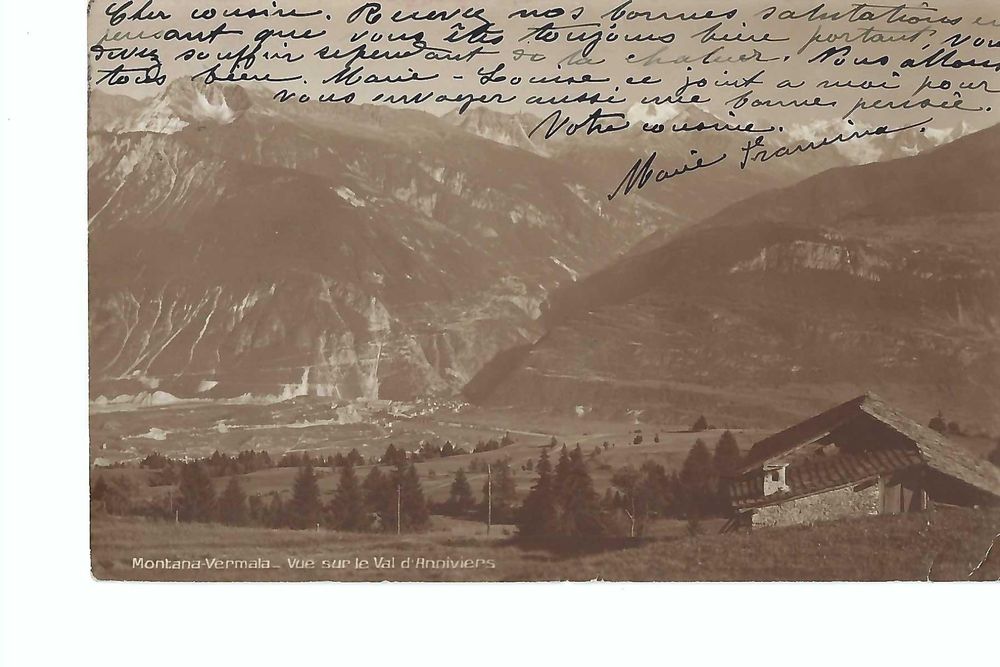 Cher cousine. Recevez nos bonnes salutations en
pensant que vous êtes toujours bien portant, vous
devez souffrir sependant de la chaleur. Nous allons
tous bien. Marie - Louise ce joint a moi pour
vous envoyer aussi une bonne pensée.
Votre cousine.
Marie
Montana-Vermala_ Vue sur le Val d'Anniviers